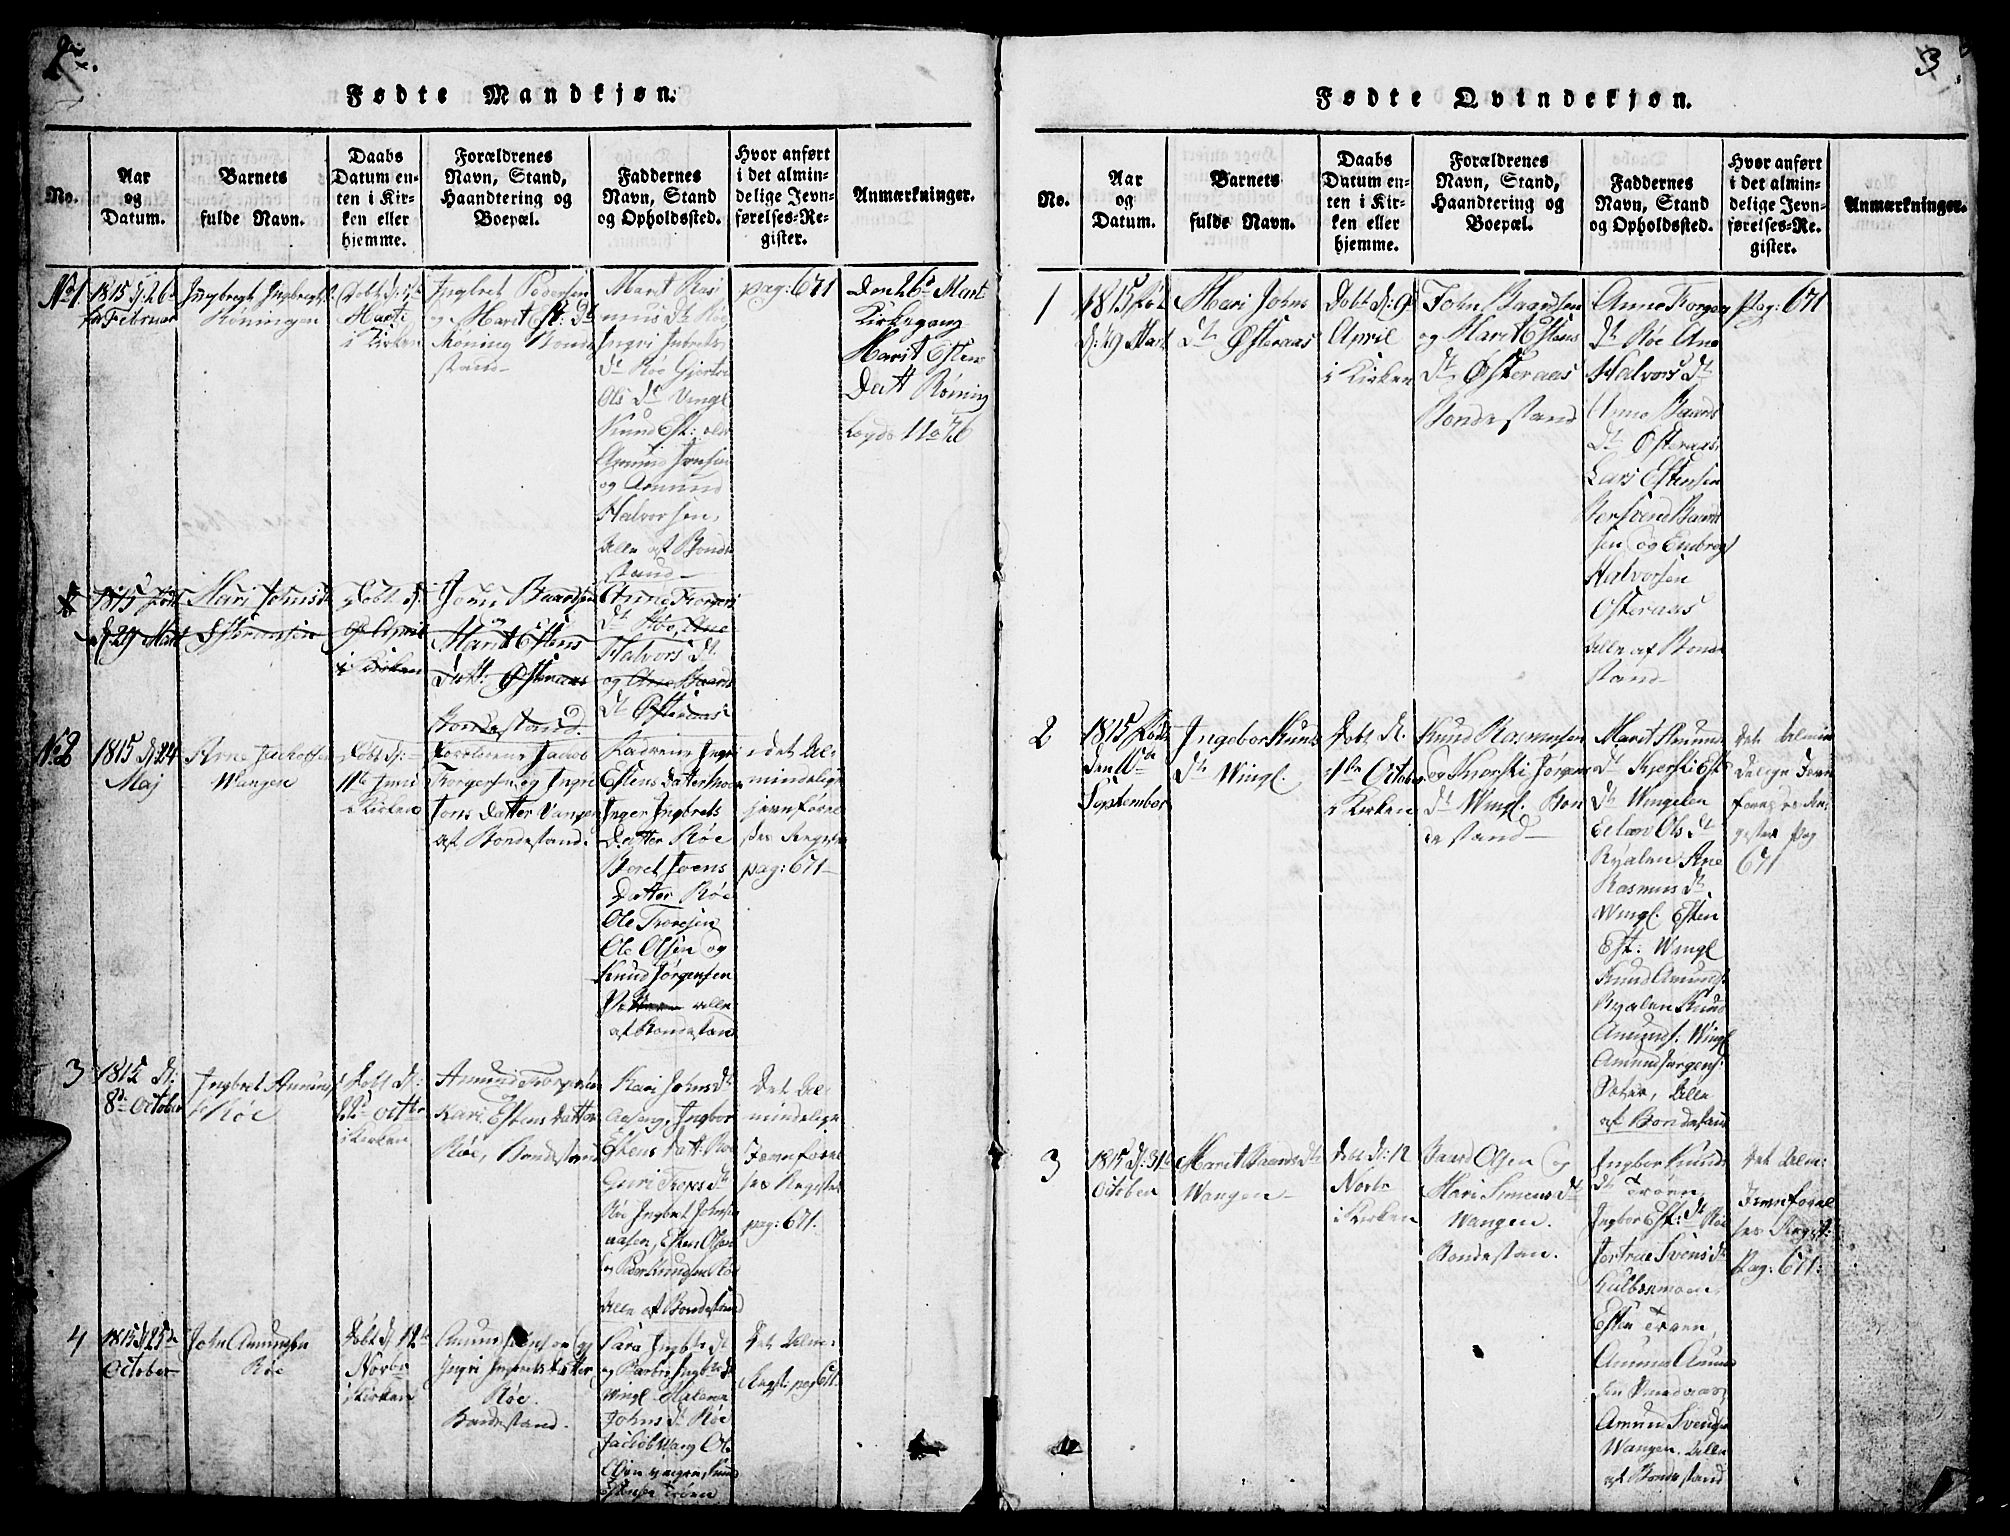 2
Fødte Mandkjøn.
No.
Aar
og
Datum.
Barnets
fulde Navn.
Daabs
Datum en-
ten i Kir-
ken eller
hjemme.
Forældrenes
Navn, Stand,
Haandtering og
Boepæl.
Faddernes
Navn, Stand
og Opholdssted.
Hvor anført
i det almin-
delige Jevn-
førelses-Re-
gister.
Anmærkninger.
No 1
1815 d: 26
Februar
Ingbregt Ingbregts
Röningen
Döbt d:
Marti
i Kirken
Ingbret Pedersen
og Marit Est: dt
Röning Bonde
stand
Marit Ras
mus dt Röe
Ingri Ingbrets
dt Röe
Ols dt Vingl
Knud Est:
Amund Jonsen
og Amund
Halvorsen,
Alle af Bonde
stand
pag: 671
Den 26 Mart
Kirkegang
Marit Estens
Datt Röning
1815 Föd
d: 29 Mart
Mari Johnsdt
Döbt d:
9 April
i Kirken
John Baardsen
og
Marit Estens
Datt: Østeraas
Bondestand.
Anne Torgers
dt Röe, Ane
Halvors dt
og Ane Baards
dt Østeraas
No 2
1815 d: 24
Maj
Arne Jacobsen
Wangen
Döbt d:
11te Juni
i Kirken
Forældrene Jacob
Torgersen og Ingri
Jons Datter Vangen
af Bondestand.
Faddrene Ingri
Estens Datter
Inger Ingbrets
Datter Röe
Beret Joens
Datter Röe
Ole Toresen
Ole Olsen og
Knud Jörgensen
alle
af Bondestand
i det Al
mindelige
jevnförel
ses Register
pag: 671
3
1815 d:
8de October
Ingbret Amunds
Röe
Döbt d:
22 Octbr
i Kirken
Amund Torgersen
og
Kari Estens Datter
Röe, Bondestand
Kari Johns dt
Aaseng, Ingbor
Estens Datt: Röe
Guri Tores dt
Röe Ingbret Johnsen
Aasen, Esten Olsen
og Peder Knudsen Röe
Alle af Bondestand
Det Al
mindelige
Jevnförel
ses Register
pag: 671.
4
1815 d: 25de
October
John Amundsen
Röe
Döbt d: 12te
Novbr
i Kirken
Amund Jonsen og
Ingri Ingbrets Datter
Röe.
Bondestand.
Sara Ingb: dt
og Barbro Ingbr: dt
Wingl
Johns dt Röe
Jacob Wang Ole
Olsen Vangen, Knud
Estensen Troen
Det Alm:
Regst: pag 671.
3
Fødte Qvindekjøn.
No.
Aar
og
Datum.
Barnets
fulde Navn.
Daabs
Datum en-
ten i Kir-
ken eller
hjemme.
Forældrenes
Navn, Stand,
Haandtering og
Boepæl.
Faddernes
Navn, Stand
og Opholdssted.
Hvor anført
i det almin-
delige Jevn-
førelses-Re-
gister.
Anmærkninger.
1
1815 Föd
d: 29 Mart
Mari Johns
dt Østeraas
Döbt d: 9
April
i Kirken
John Baardsen
og Marit Estens
dt Østeraas
Bondestand
Anne Torgers
dt Röe Ane
Halvors dt
Anne Baards
dt Østeraas
Lars Estensen
Bersvend Baard
sen og Embregt
Halvorsen
Østeraas
Alle af Bonde
stand
Pag: 671
2
1815 Född
den 10de
September
Ingebor Knuds
dt Wingl.
Döbt d:
1ste October
i Kirken
Knud Rasmusen
og Kiersti Jörgens
dt Wingl. Bon
destand
Marit Amund
dt Kjersti Est
dt Wingelen
Ols dt
Ryalen Ane
Rasmus dt
Wingl. Esten
Est: Wingl
Knud Amunds.
Ryalen Knud
Amunds. Wingl
Amund Jörgens.
Alle
af Bondestand
Det Almin
delige Jevn
förelses Re
gister Pag
671
3
1815 d: 31te
October
Marit Baards dt
Wangen
Döbt d: 12
Novbr
i Kirken
Baard Olsen og
Mari Simens dt
Wangen.
Bondestan.
Ingbor Knuds
dt Troen
Ingbor Est: dt Röe
Svens dt
Esten Troen,
Amund Amund
sen
Amun Svendsen
Wangen. Alle
af Bondestand
Det Alm:
Jevnförel
ses Regist:
Pag: 671.